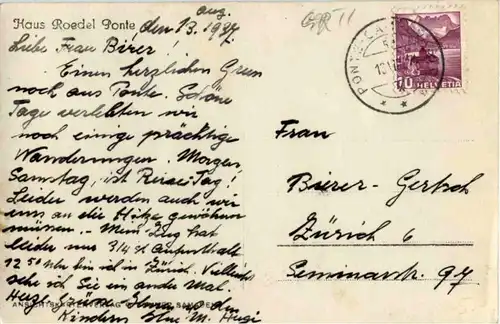 Haus Roedel Ponte den 13. Aug. 1937
Liebe Frau Birer!
Einen herzlichen Gruss
noch aus Ponte. Schöne
Tage verlebten wir
noch einige prächtige
Wanderungen. Morgen
Samstag, ist Reise-Tag!
Leider werden auch wir
uns an die Hitze gewöhnen
müssen. - Mein Zug hat
leider nur 3/4 st Aufenthalt
12 50 Uhr bin ich in Zürich. Vielleicht
sehe ich Sie ein ander Mal.
Herzl. Grüsse Ihnen u. den
Kindern Ihre M.
HELVETIA
Frau
Birer-Gertsch
Zürich 6
Seminarstr. 97